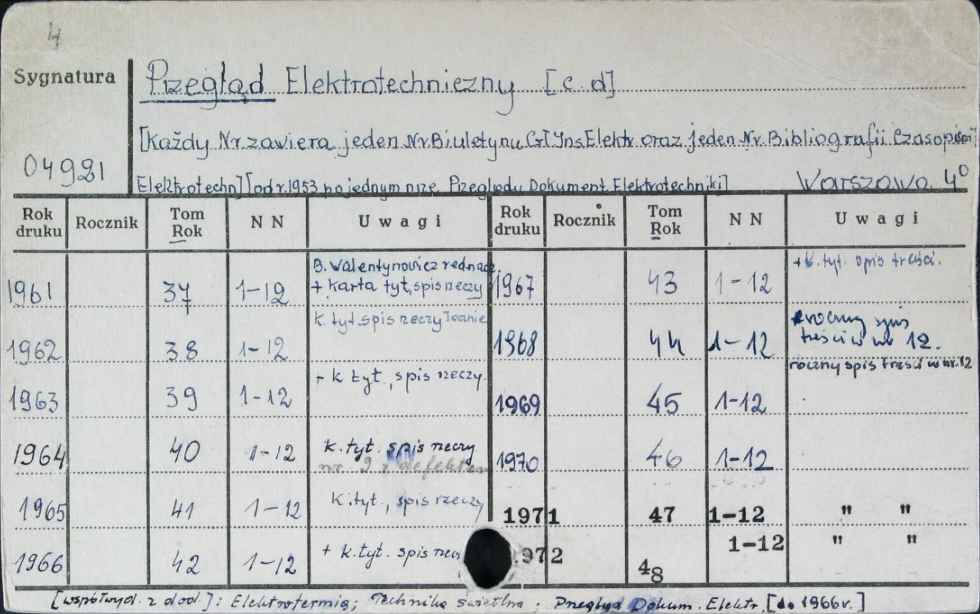 4
Sygnatura
04921
Przegląd Elektrotechniczny [c.d]
[Każdy Nr.zawiera jeden Nr.Biuletynu Gł Ins.Elektr oraz jeden Nr. Bibliografii Czasopiśm
Elektrotechn][od r.1953 po jednym nrze Przeglądu Dokument. Elektrotechniki] Warszawa 4°
Rok druku Rocznik Tom Rok N N Uwagi Rok druku Rocznik Tom Rok N N Uwagi
1961 37 1-12 B. Walentynowicz
+ karta tyt, spis rzeczy
1962 38 1-12 k. tyt. spis rzeczy
1963 39 1-12 + k tyt., spis rzeczy
1964 40 1-12 k. tyt. spis rzeczy
nr. 9 z defektem
1965 41 1-12 k. tyt., spis rzeczy
1966 42 1-12 + k. tyt. spis
1967 43 1-12 + k. tyt. spis treści.
1968 44 1-12 roczny spis
treści w nr 12.
1969 45 1-12 roczny spis treści w nr. 12
1970 46 1-12
1971 47 1-12 " "
1972 48 1-12 " "
[współwyd. z dod]: Elektrotermia; Technika świetlna; Przegląd Dokum. Elektr. [do 1966r.]